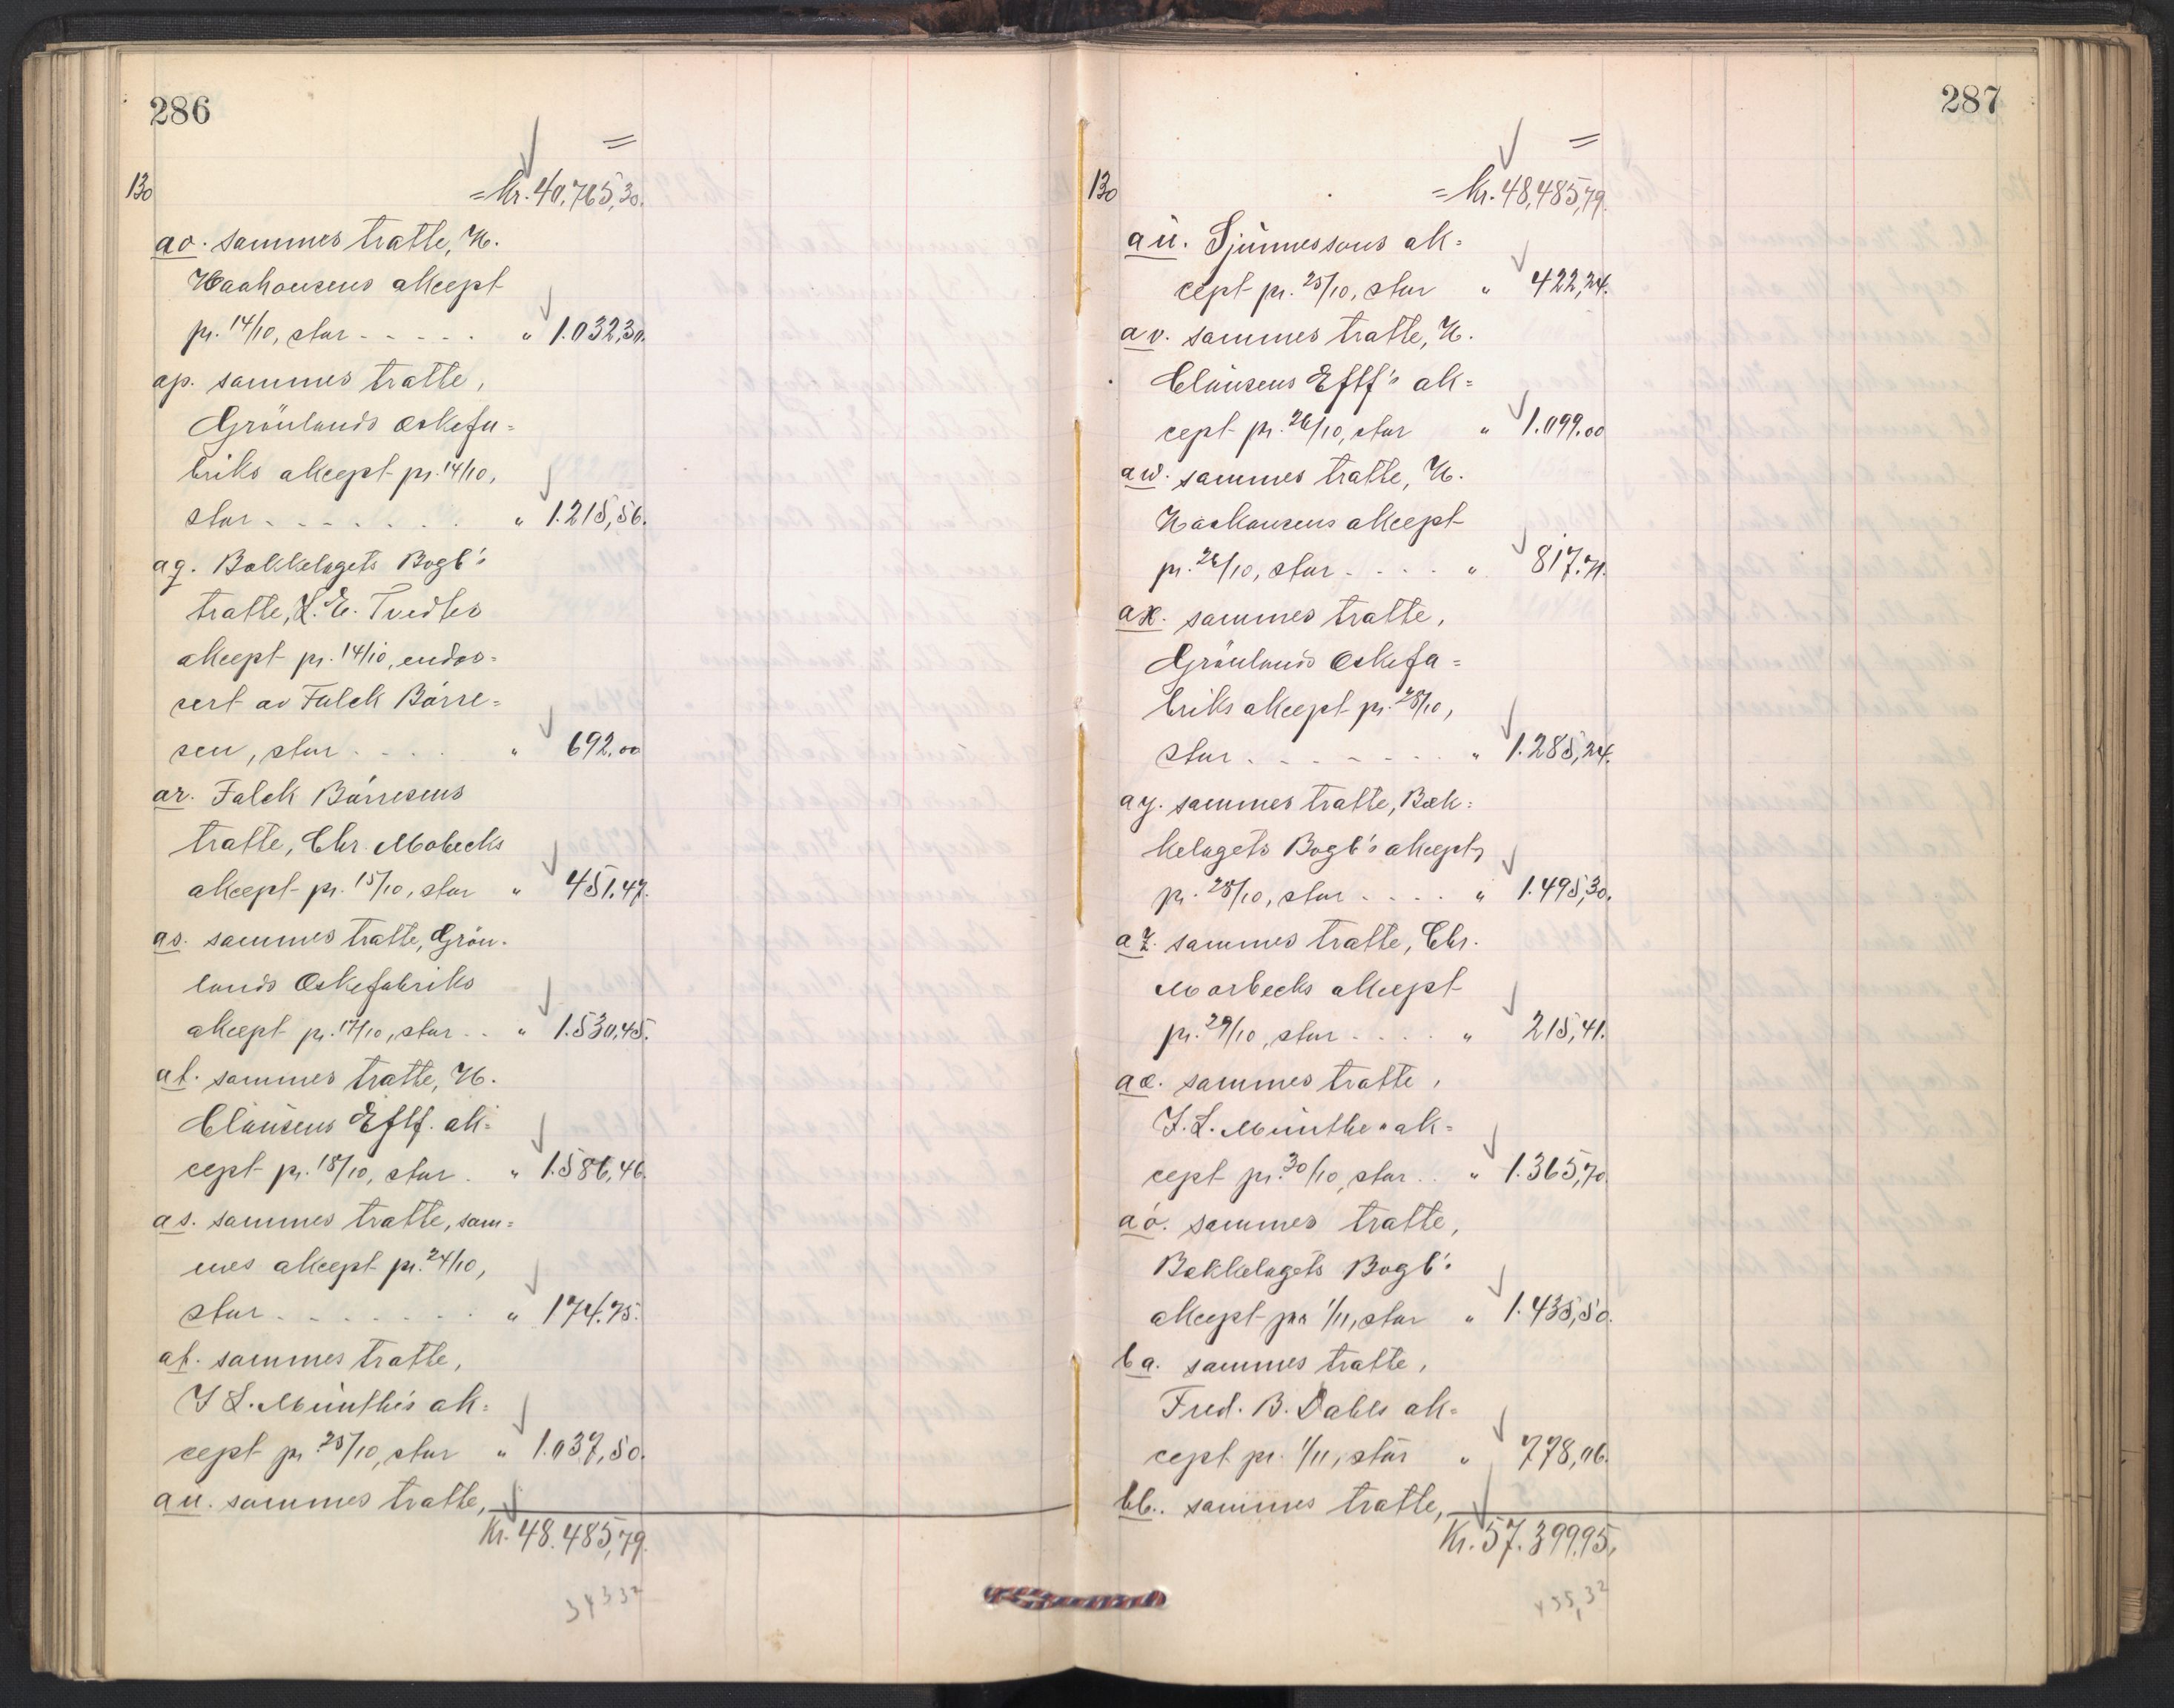 286
=
130 = Kr. 40,765,30.
ao. sammes tratte, H.
Haahausens aksept
pr. 14/10, stor - - - - - " 1.032,30.
ap. sammes tratte,
Grönlands æskefa=
briks aksept pr. 14/10,
stor - - - - - - - " 1.215,56.
aq. Bækkelagets Bogb's
tratte, H. E. Tvedtes
aksept pr. 14/10, endos=
sert av Falck Börre=
sen, stor - - - - " 692.00
ar. Falck Börresens
tratte, Chr. Mobecks
aksept pr. 15/10, stor " 451,47.
as. sammes tratte, Grön-
lands Æskefabriks
aksept pr. 17/10, stor - - " 1.530,45.
at. sammes tratte, H.
Clausens Eftf. ak=
cept pr. 18/10, stor - " 1.586,46.
as. sammes tratte, sam=
mes aksept pr. 24/10,
stor - - - - - - - " 174.75.
at. sammes tratte,
J L. Münthes ak=
cept pr. 25/10, stor " 1.037,50.
au. sammes tratte,
Kr. 48.485,79.
34332
287
=
130 = Kr. 48,485,79.
au. Sjünnessons ak=
cept pr. 25/10, stor " 422,24.
av. sammes tratte, H.
Clausens Eftf's ak=
cept pr. 26/10, stor " 1.099.00
aw. sammes tratte, H.
Haahausens aksept
pr. 26/10, stor - - - - " 817.71.
ax. sammes tratte,
Grönlands Æskefa=
briks aksept pr. 28/10,
stor - - - - - - - " 1.285,24.
ay. sammes tratte, Bæk=
kelagets Bogb's aksept,
pr. 28/10, stor - - - - " 1.495,30.
az. sammes tratte, Chr.
Morbecks aksept
pr. 29/10, stor - - - - " 215,41.
aæ. sammes tratte,
J. L. Münthes ak=
cept pr. 30/10, stor - - " 1.365,70.
aö. sammes tratte,
Bækkelagets Bogb's
aksept pr. 1/11, stor " 1.435,50.
ba. sammes tratte,
Fred. B. Dahls ak=
cept pr. 1/11, stor " 778,06.
bb. sammes tratte,
Kr. 57.399.95.